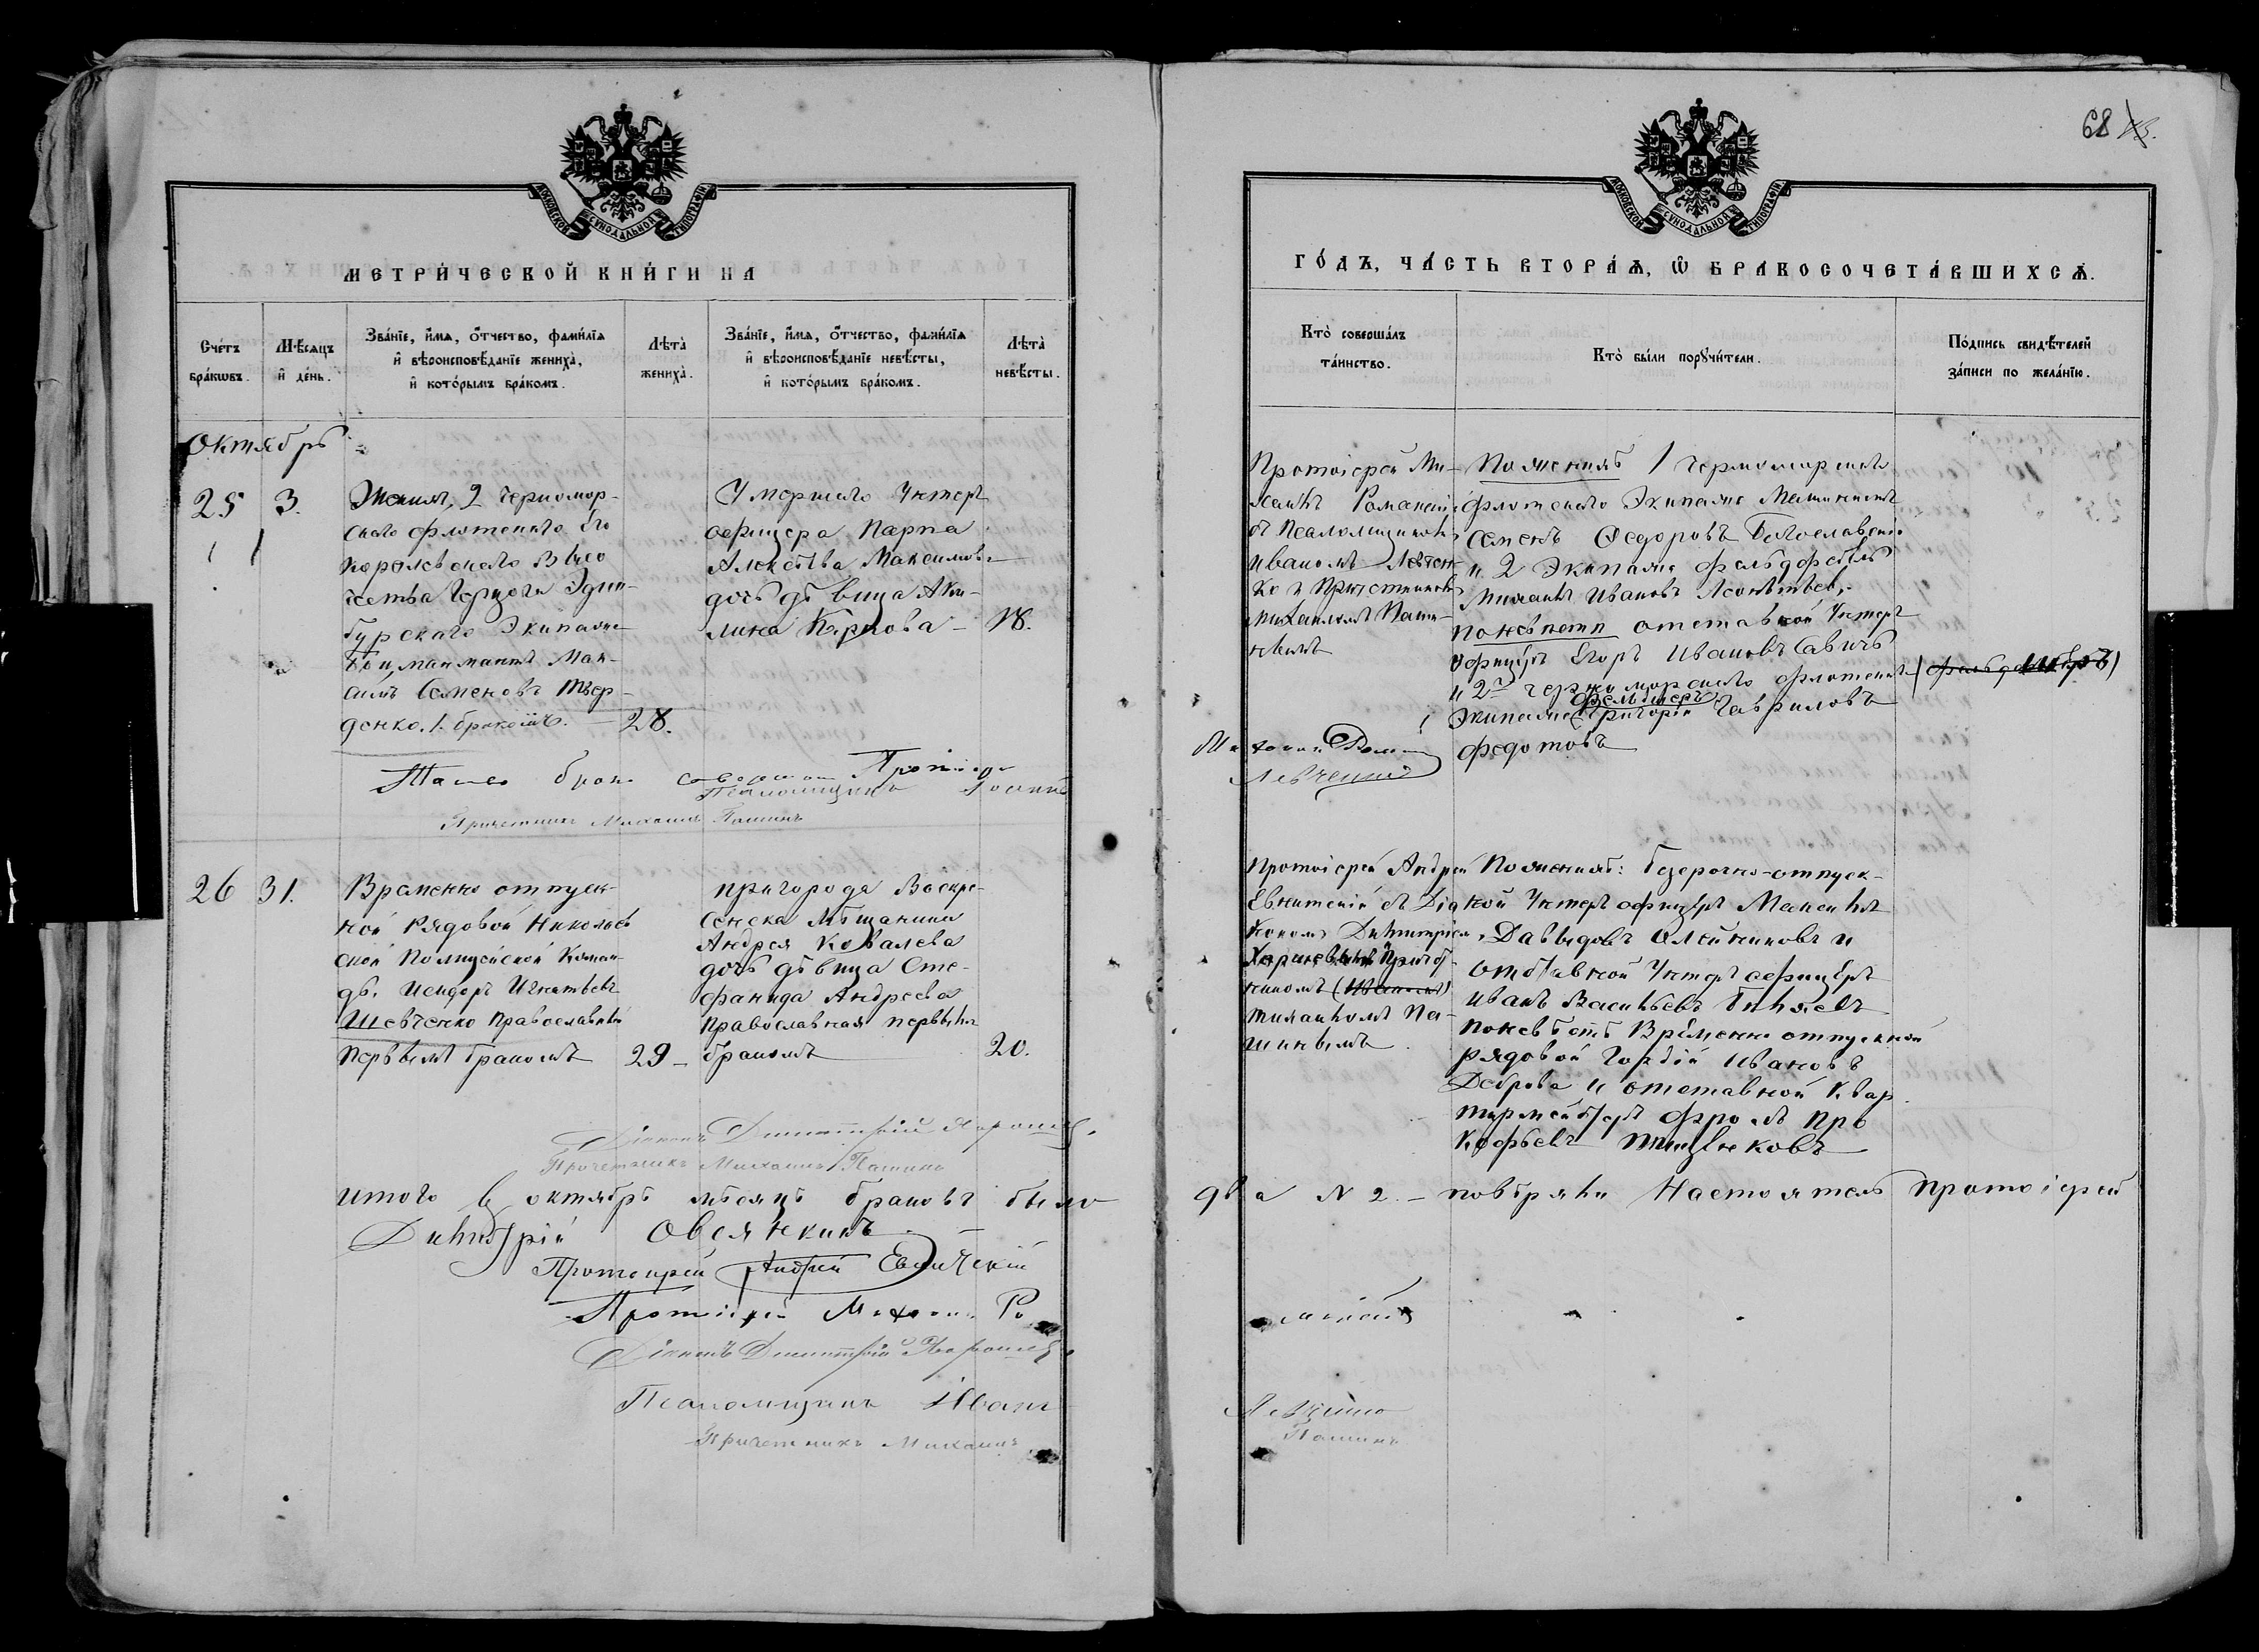 68
МОСКОВСКОЙ СУНОДАЛЬНОЙ ТИПОГРАФІИ
МЕТРИ́ЧЕСКОЙ КНИ́ГИ НА
Сче́тъ бра́кωвъ.
Мѣ́сяцъ и҆ де́нь.
Зва́нїе, и҆́мѧ, ѻ҆́тчество, фами́лїѧ и҆ вѣроисповѣ́данїе жениха̀, и҆ кото́рымъ бра́комъ.
Лѣта̀ жениха̀.
Зва́нїе, и҆́мѧ, ѻ҆́тчество, фами́лїѧ и҆ вѣроисповѣ́данїе невѣ́сты, и҆ кото́рымъ бра́комъ.
Лѣта̀ невѣ́сты.
Октябрь
25
3.
Женихъ, 2 Черномор-
скаго флотскаго Его
Королевскаго Высо
чества Герцога Эдин-
бургскаго Экипажа
Мак-
симъ Семеновъ Твер-
денко. 1. бракомъ.
28.
Умершаго Унтеръ
офицера Карпа
Алексѣева Максимова
дочь дѣвица Аку-
лина Карпова
18.
Таинство брака совершили Протоіерей
Псаломщикъ Іоаннъ
Причетникъ Михаилъ Пашинъ
26
31.
Временно отпуск-
ной Рядовой Николаев
ской Полицейской Коман-
ды. Исидоръ Игнатьевъ
Шевченко Православный
первымъ бракомъ
29
пригорода Воскре-
сенска Мѣщанина
Андрея Ковалева
дочь дѣвица Сте-
фанида Андреева
Православная первымъ
бракомъ
20.
Діаконъ Димитрій
Причетникъ Михаилъ Пашинъ
итого въ октябрѣ мѣсяцѣ браковъ было
Димитрій Овсянкинъ
Протоіерей Андрей
Протоіерей Михаилъ Ро
Діаконъ Димитрій
Псаломщикъ Иванъ
Причетникъ Михаилъ
МОСКОВСКОЙ СУНОДАЛЬНОЙ ТИПОГРАФІИ
ГО́ДЪ, ЧА́СТЬ ВТОРА́Ѧ, Ѽ БРАКОСОЧЕТА́ВШИХСѦ.
Кто̀ соверша́лъ та́инство.
Кто̀ бы́ли порꙋчи́тели.
По́дпись свидѣ́телей за́писи по жела́нїю.
Протоіерей Ми-
хаилъ Романскій
съ Псаломщикомъ
Иваномъ Левчен-
ко и Причетником
Михаиломъ Паши-
нымъ
По женихѣ 1 Черноморскаго
флотскаго Экипажа
Семенъ Федоровъ Богославскій
и 2 Экипажа фельдфебель
Михаилъ Ивановъ Леонтьев,
по невѣстѣ отставной Унтеръ
офицеръ Егоръ Ивановъ Савичъ
и 2го Черноморскаго флотскаго
фельдшеръ
Экипажа Григорій Гавриловъ
Федотовъ
Михаилъ
Левченко
Протоіерей Андрей
съ Діа
кономъ Димитріем
Причет
никомъ
Михаиломъ Па-
шинымъ
По женихѣ: безсрочно-отпуск-
ной Унтеръ офицеръ
Давыдовъ Олейниковъ и
отставной Унтеръ офицеръ
Иванъ Васильевъ
по невѣстѣ Временно отпускной
рядовой Гордій Ивановъ
и отставной Квар
тирмейстеръ Фролъ Про
кофьевъ
два № 2. – повѣряли Настоятель Протоіерей
Левченко
Пашинъ